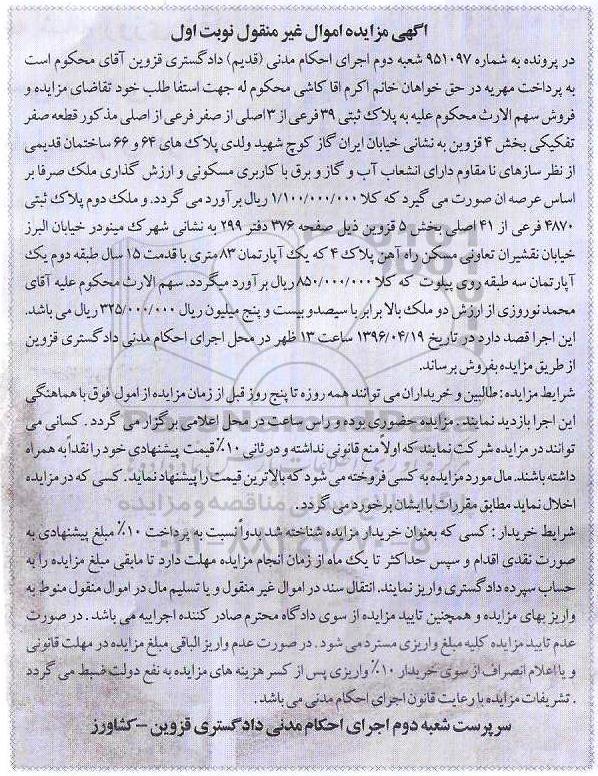 آگهی مزایده اموال غیر منقول نوبت اول
در پرونده به شماره ۹۵۱۰۹۷ شعبه دوم اجرای احکام مدنی (قدیم) دادگستری قزوین آقای محکوم است
به پرداخت مهریه در حق خواهان خانم اکرم اقا کاشی محکوم له جهت استفا طلب خود تقاضای مزایده و
فروش سهم الارث محکوم علیه به پلاک ثبتی ۳۹ فرعی از ۳ اصلی از صفر فرعی از اصلی مذکور قطعه صفر
تفکیکی بخش ۴ قزوین به نشانی خیابان ایران گاز کوچ شهید ولدی پلاک های ۶۴ و ۶۶ ساختمان قدیمی
از نظر سازهای نا مقاوم دارای انشعاب آب و گاز و برق با کاربری مسکونی و ارزش گذاری ملک صرفا بر
اساس عرصه ان صورت می گیرد که کلا ۱/۱۰۰/۰۰۰/۰۰۰ ریال بر آورد می گردد. و ملک دوم پلاک ثبتی
۴۸۷۰ فرعی از ۴۱ اصلی بخش ۵ قزوین ذیل صفحه ۳۷۶ دفتر ۲۹۹ به نشانی شهرک مینودر خیابان البرز
خیابان نقشیران تعاونی مسکن راه آهن پلاک ۴ که یک آپارتمان ۸۳ متری با قدمت ۱۵ سال طبقه دوم یک
آپارتمان سه طبقه روی پیلوت که کلا ۸۵۰/۰۰۰/۰۰۰ ریال بر آورد میگردد. سهم الارث محکوم علیه آقای
محمد نوروزی از ارزش دو ملک بالا برابر با سیصدو بیست و پنج میلیون ریال ۳۲۵/۰۰۰/۰۰۰ ریال می باشد.
این اجرا قصد دارد در تاریخ ۱۳۹۶/۰۴/۱۹ ساعت ۱۳ ظهر در محل اجرای احکام مدنی دادگستری قزوین
از طریق مزایده بفروش برساند.
شرایط مزایده: طالبین و خریداران می توانند همه روزه تا پنج روز قبل از زمان مزایده از امول فوق با هماهنگی
این اجرا بازدید نمایند. مزایده حضوری بوده و راس ساعت در محل اعلامی برگزار می گردد. کسانی می
توانند در مزایده شرکت نمایند که اولاً منع قانونی نداشته و در ثانی ۱۰٪ قیمت پیشنهادی خود را نقداً به همراه
داشته باشند. مال مورد مزایده به کسی فروخته می شود که بالاترین قیمت را پیشنهاد نماید. کسی که در مزایده
اخلال نماید مطابق مقررات با ایشان برخورد می گردد.
شرایط خریدار: کسی که بعنوان خریدار مزایده شناخته شد بدواً نسبت به پرداخت ۱۰٪ مبلغ پیشنهادی به
صورت نقدی اقدام و سپس حداکثر تا یک ماه از زمان انجام مزایده مهلت دارد تا مابقی مبلغ مزایده را به
حساب سپرده دادگستری واریز نمایند. انتقال سند در اموال غیر منقول و یا تسلیم مال در اموال منقول منوط به
واریز بهای مزایده و همچنین تایید مزایده از سوی دادگاه محترم صادر کننده اجراییه می باشد. در صورت
عدم تایید مزایده کلیه مبلغ واریزی مسترد می شود. در صورت عدم واریز الباقی مبلغ مزایده در مهلت قانونی
و یا اعلام انصراف از سوی خریدار ۱۰٪ واریزی پس از کسر هزینه های مزایده به نفع دولت ضبط می گردد
. تشریفات مزایده با رعایت قانون اجرای احکام مدنی می باشد.
سرپرست شعبه دوم اجرای احکام مدنی دادگستری قزوین - کشاورز